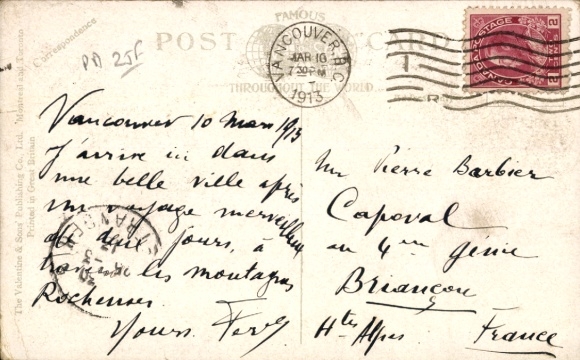 Correspondence
PD 25F
FAMOUS
POST CARD
THROUGHOUT THE WORLD
VANCOUVER, B.C.
MAR 10
7 30 PM
1913
CANADA POSTAGE
2 CENTS 2
The Valentine & Sons' Publishing Co., Ltd. Montreal and Toronto
Printed in Great Britain
Vancouver 10 Mars 1913
J'arrive ici dans
une belle ville après
un voyage merveilleux
de deux jours, à
travers les montagnes
Rocheuses.
Yours
Mr Pierre Barbier
Caporal
au 4me Génie
Briançon
Htes Alpes France